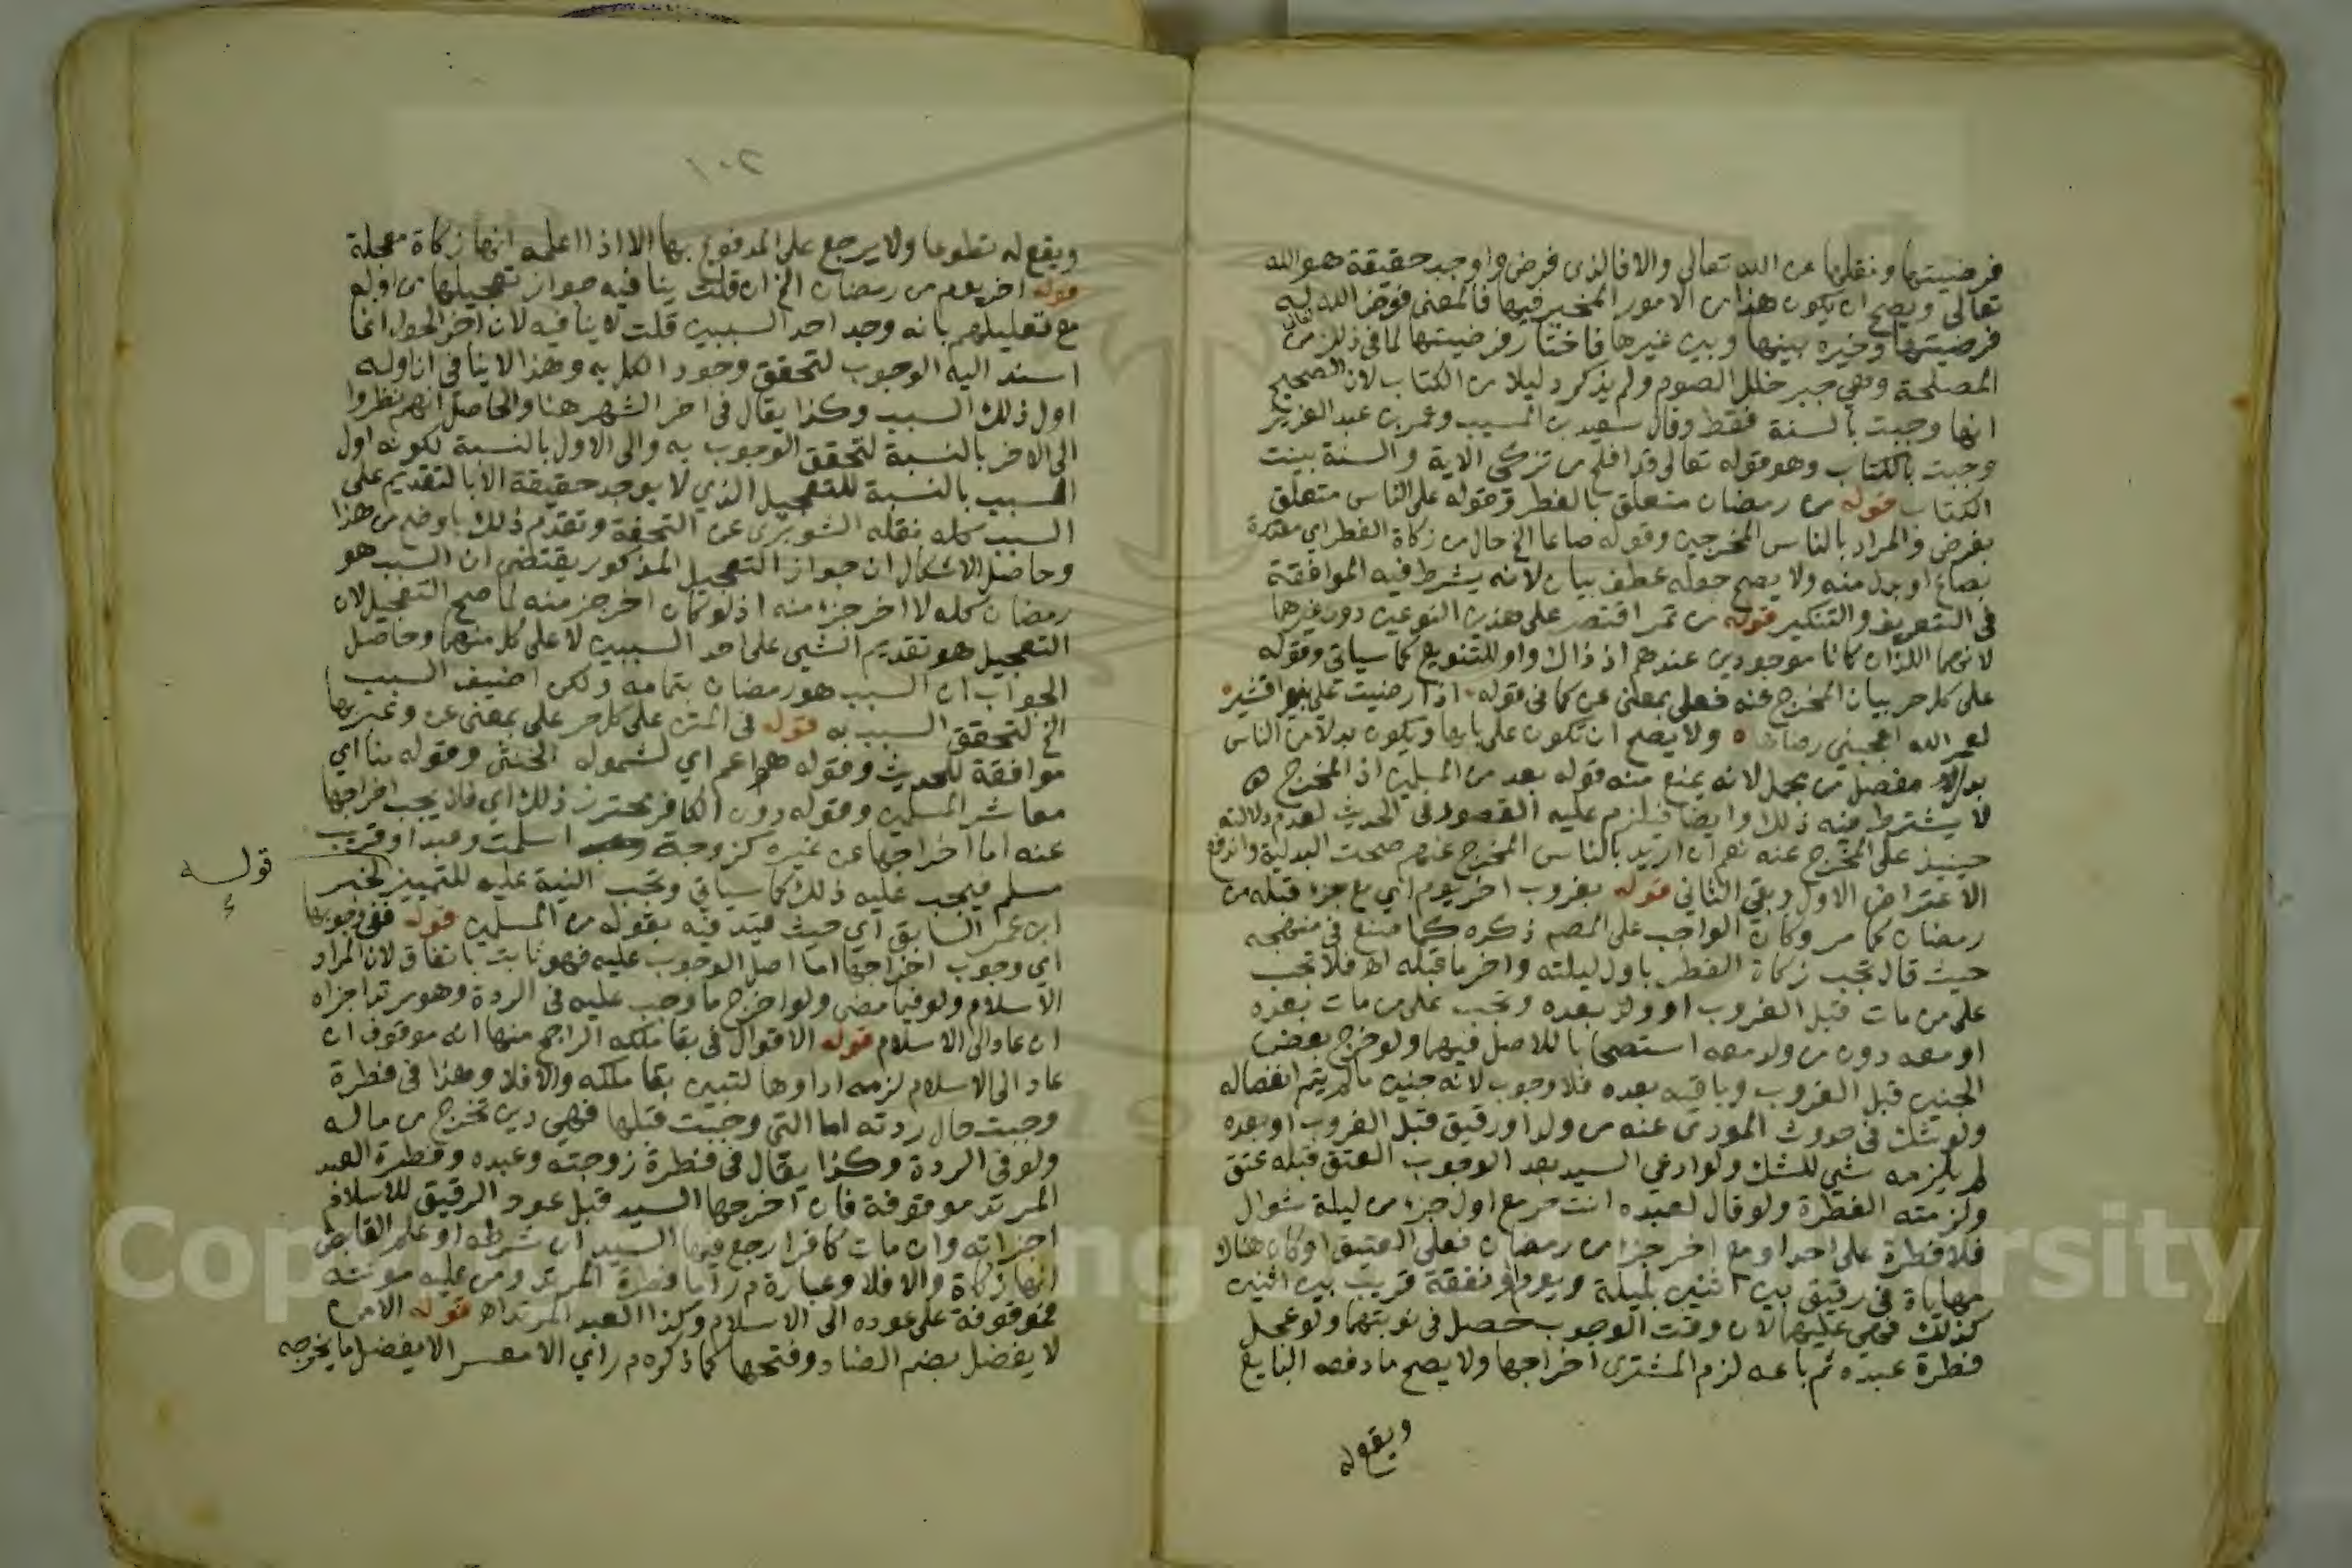 فرضيتها ونقلها عن الله تعالى والا فالذى فرض واوجب حقيقة هو الله
تعالى ويصح ان يكون هذا من الامور المخير فيها فالمعنى فوض الله له
فرضيتها وخيره بينها وبين غيرها فاختار فرضيتها لما فى ذلك من
المصلحة وهي جبر خلل الصوم ولم يذكر دليلا من الكتاب لان الصحيح
انها وجبت بالسنة فقط وقال سعيد بن المسيب وعمر بن عبد العزيز
وجبت بالكتاب وهو قوله تعالى قد افلح من تزكى الاية والسنة بينت
الكتاب قوله من رمضان متعلق بالفطر وقوله على الناس متعلق
بفرض والمراد بالناس المخرجين وقوله صاعا الخ حال من زكاة الفطر اي مقدرة
بصاع او بدل منه ولا يصح جعله عطف بيان لانه يشترط فيه الموافقة
فى التعريف والتنكير قوله من تمر اقتصر على هذين النوعين دون غيرهما
لانهما اللذان كانا موجودين عندهم اذ ذاك واو للتنويع كما سياتي وقوله
على كل حر بيان المخرج عنه فعلى بمعنى عن كما فى قوله اذا رضيت علي بنو قشير
لعمر الله اعجبني رضاها ولا يصح ان تكون على بابها ويكون بدلا من الناس
بدل مفصل من مجمل لانه يمنع منه قوله بعد من المسلمين اذ المخرج
لا يشترط فيه ذلك وايضا فيلزم عليه القصور فى الحديث لعدم دلالته
حينيذ على المخرج عنه نعم ان اريد بالناس المخرج عنهم صحت البدلية واندفع
الاعتراض الاول وبقي الثانى قوله بغروب اخر يوم اي مع جزء قبله من
رمضان كما مر وكان الواجب على المصم ذكره كما صنع فى منهجه
حيث قال تجب زكاة الفطر باول ليلته واخر ما قبله اهـ فلا تجب
على من مات قبل الغروب او ولد بعده وتجب على من مات بعده
او معه دون من ولد معه استصحابا للاصل فيهما ولو خرج بعض
الجنين قبل الغروب وباقيه بعده فلا وجوب لانه جنين ما لم يتم انفصاله
ولو شك فى حدوث المودى عنه من ولد او رقيق قبل الغروب او بعده
لم يلزمه شي للشك ولو ادعى السيد بعد الوجوب العتق قبله عتق
ولزمته الفطرة ولو قال لعبده انت حر مع اول جزء من ليلة شوال
فلا فطرة على احد او مع اخر جزء من رمضان فعلى العتيق او كان هناك
مهاياة فى رقيق بين اثنين بليلة ويوم او نفقة قريب بين اثنين
كذلك فهي عليهما لان وقت الوجوب حصل فى نوبتهما ولو عجل
فطرة عبده ثم باعه لزم المشترى اخراجها ولا يصح ما دفعه البايع
ويقع له
٢٠١
ويقع له تطوعا ولا يرجع على المدفوع بها الا اذا اعلمه انها زكاة معجلة
قوله اخر يوم من رمضان الخ ان قلت ينافيه جواز تعجيلها من اوله
مع تعليلهم بانه وجد احد السببين قلت لا ينافيه لان اخر الحول انما
اسند اليه الوجوب لتحقق وجود الكل به وهذا لا ينافى ان اوله
اول ذلك السبب وكذا يقال فى اخر الشهر هنا والحاصل انهم نظروا
الى الاخر بالنسبة لتحقق الوجوب به والى الاول بالنسبة لكونه اول
السبب بالنسبة للتعجيل الذي لا يوجد حقيقة الا بالتقديم على
السبب كله نقله الشوبرى عن التحفة وتقدم ذلك باوضح من هذا
وحاصل الاشكال ان جواز التعجيل المذكور يقتضى ان السبب هو
رمضان كله لا اخر جزء منه اذ لو كان اخر جزء منه لما صح التعجيل لان
التعجيل هو تقديم الشي على احد السببين لا على كل منهما وحاصل
الجواب ان السبب هو رمضان بتمامه ولكن اضيف السبب
الخ لتحقق السبب به قوله فى المتن على كل حر على بمعنى عن وعبر بها
موافقة للحديث وقوله هو اعم اي لشموله الخنثى وقوله منا اي
معاشر المسلمين وقوله دون الكافر محترز ذلك اي فلا يجب اخراجها
عنه اما اخراجها عن غيره كزوجة اسلمت وعبد او قريب
مسلم فيجب عليه ذلك كما سياتي وتجب النية عليه للتمييز لخبر
قوله
ابن عمر السابق اي حيث قيد فيه بقوله من المسلمين قوله ففى وجوبها
اي وجوب اخراجها اما اصل الوجوب عليه فهو ثابت باتفاق لان المراد
الاسلام ولو فيما مضى ولو اخرج ما وجب عليه فى الردة وهو مرتد اجزاه
ان عاد الى الاسلام قوله الاقوال فى بقا ملكه الراجح منها انه موقوف ان
عاد الى الاسلام لزمه اداوها لتبين بقا ملكه والا فلا وهذا فى فطرة
وجبت حال ردته اما التي وجبت قبلها فهي دين تخرج من ماله
ولو فى الردة وكذا يقال فى فطرة زوجته وعبده وفطرة العبد
المرتد موقوفة فان اخرجها السيد قبل عود الرقيق للاسلام
اجزاته وان مات كافرا رجع فيها السيد ان شرطه او علم القابض
انها زكاة والا فلا وعبارة م ر اما فطرة المرتد ومن عليه مونته
فموقوفة على عوده الى الاسلام وكذا العبد المرتد اهـ قوله الا من
لا يفضل بضم الضاد وفتحها كما ذكره م ر اي الا معسر الا يفضل ما يخرجه